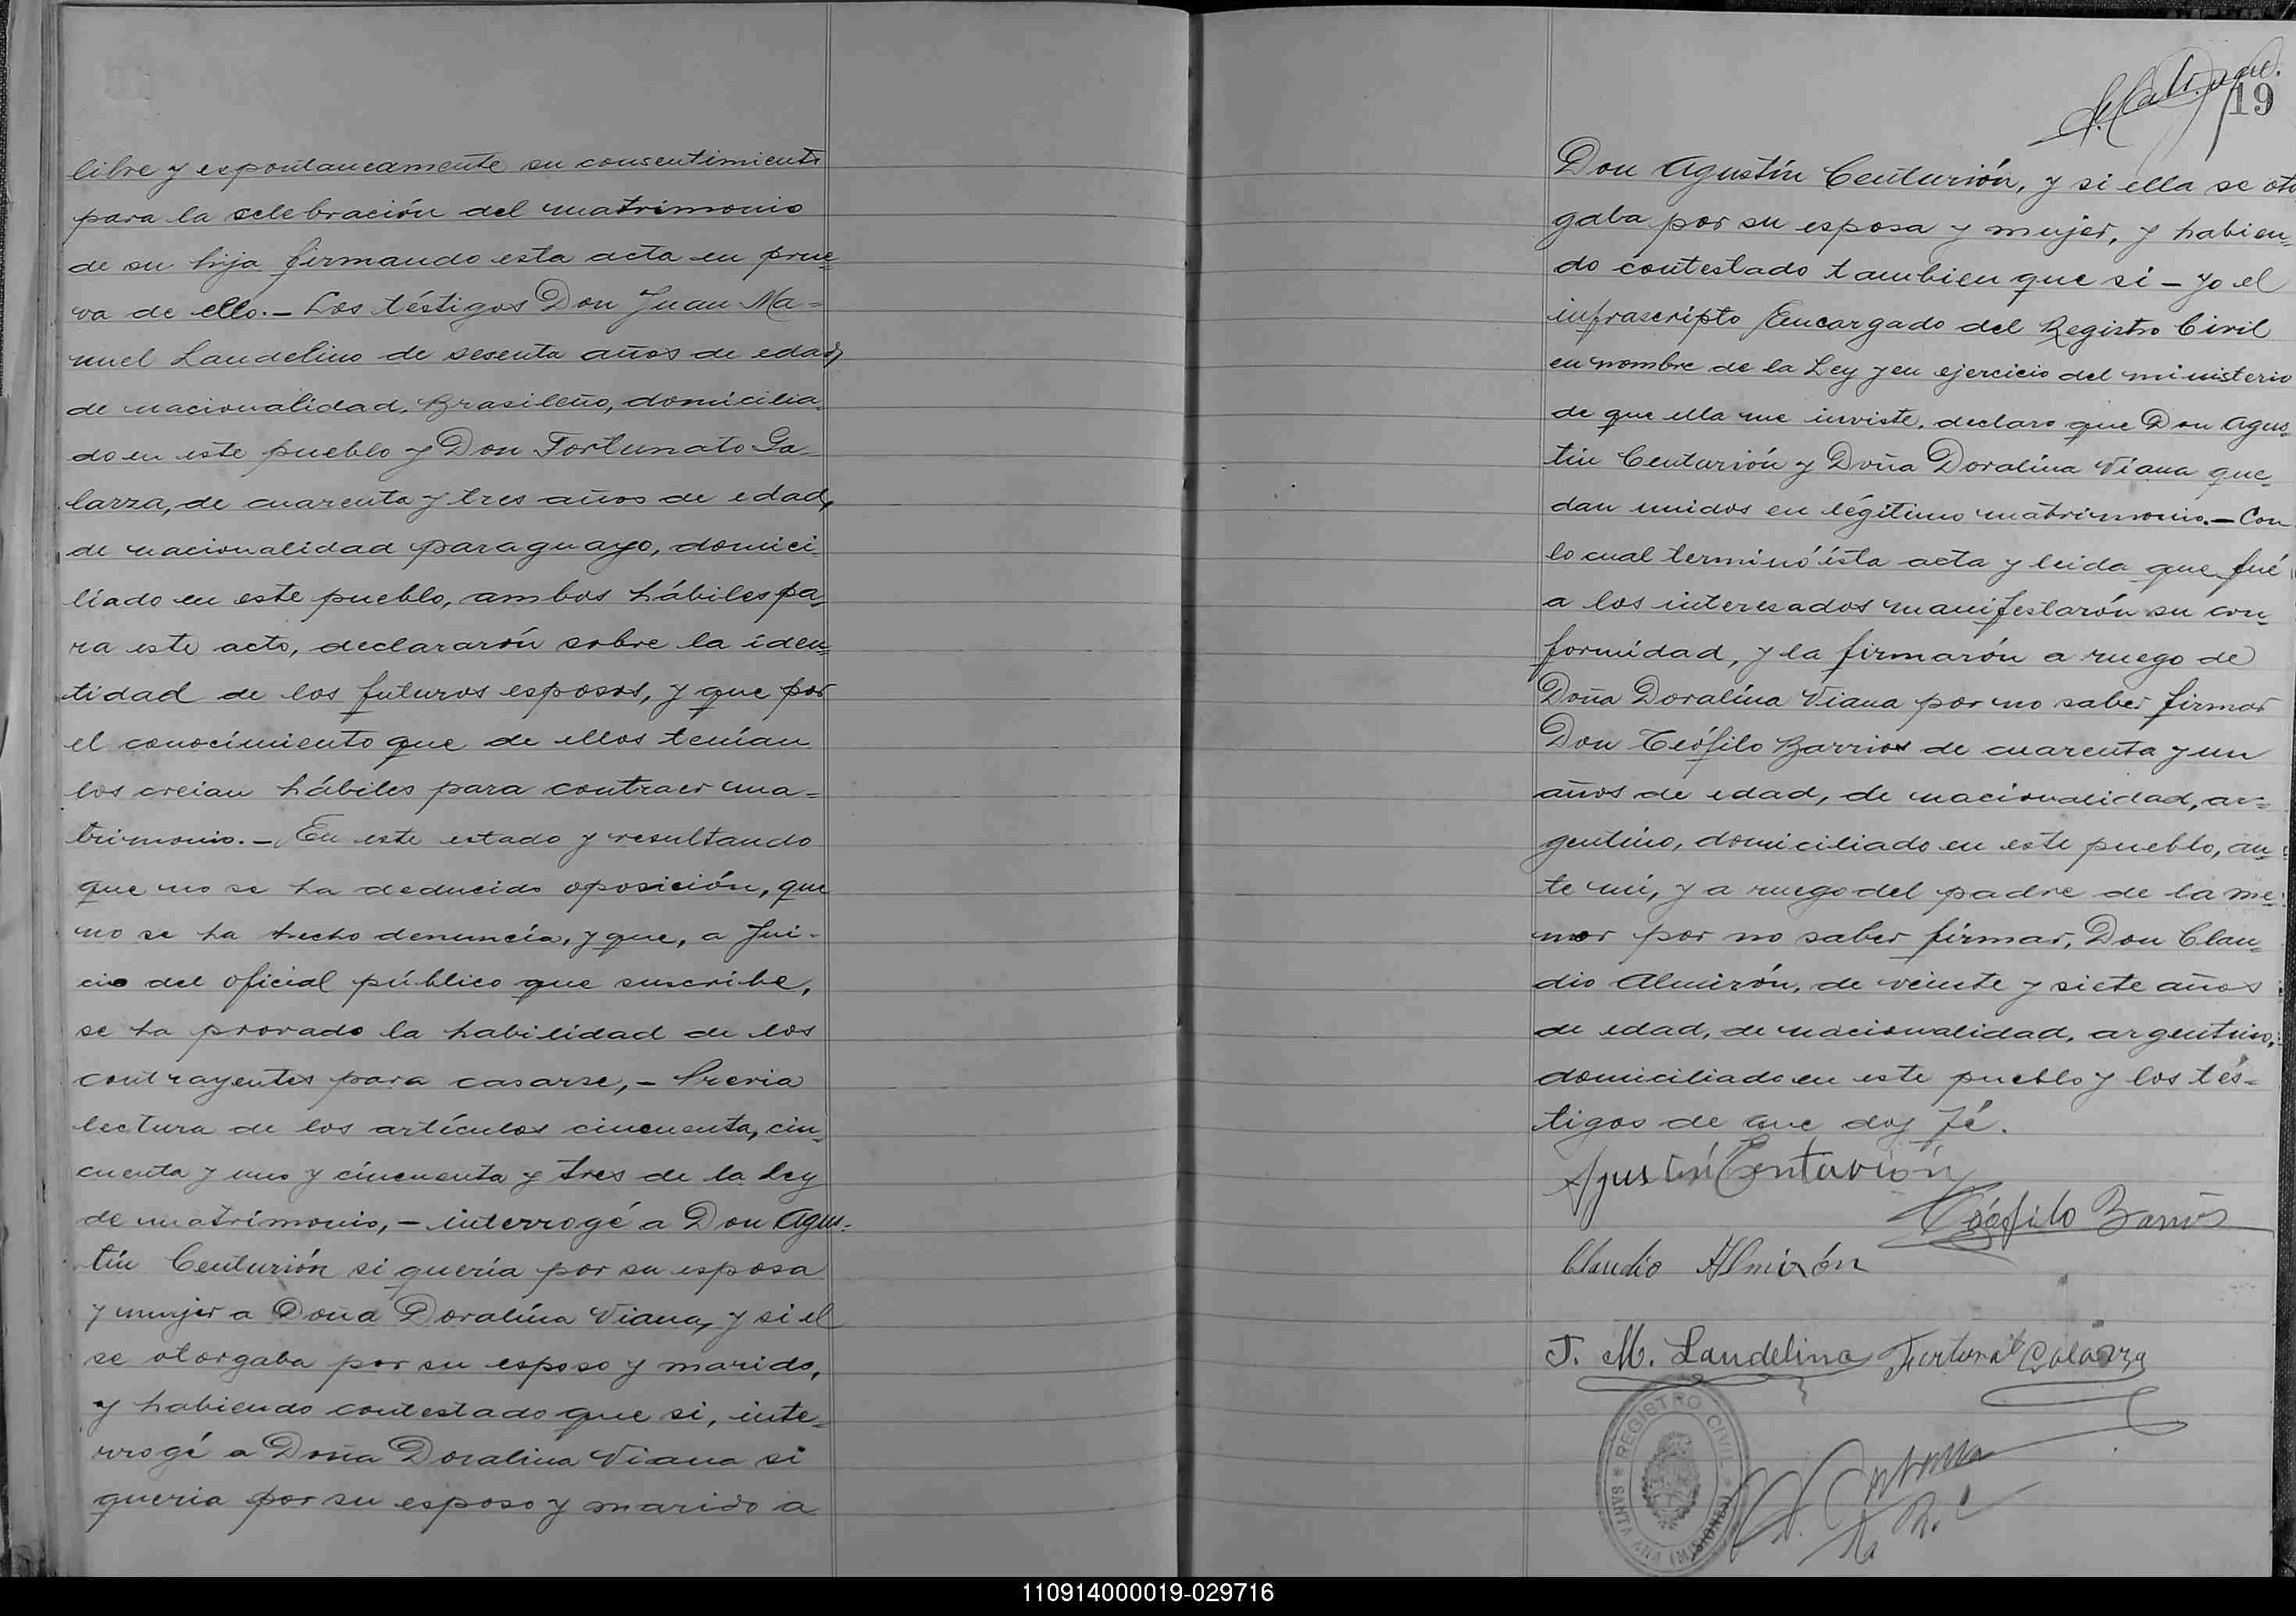 libre y espontaneamente su consentimiento
para la celebración del matrimonio
de su hija firmando esta acta en prue=
va de ello.— Los téstigos Don Juan Ma=
nuel Landelino de sesenta años de edad,
de nacionalidad, Brasileño, domicilia=
do en este pueblo y Don Fortunato Ga=
larza, de cuarenta y tres años de edad,
de nacionalidad paraguayo, domici=
liado en este pueblo, ambos hábiles pa=
ra este acto, declararón sobre la iden=
tidad de los futuros esposos, y que por
el conocimiento que de ellos tenían
los creian hábiles para contraer ma=
trimonio.— En este estado y resultando
que no se ha deducido oposición, que
no se ha hecho denuncia, y que, a Jui-
cio del oficial público que suscribe,
se ha provado la habilidad de los
contrayentes para casarse,— Previa
lectura de los artículos cincuenta, cin=
cuenta y uno y cincuenta y tres de la Ley
de matrimonio,— interrogé a Don Agus=
tín Centurión si quería por su esposa
y mujer a Doña Doralína Viana, y si el
se otorgaba por su esposo y marido,
y habiendo contestado que si, inte=
rrogé a Doña Doralina Viana si
queria por su esposo y marido a
19
Don Agustín Centurión, y si ella se oto
gaba por su esposa y mujer, y habien=
do contestado tambien que si — Yo el
infrascripto Encargado del Registro Civil
en nombre de la Ley y en ejercicio del ministerio
de que ella me inviste, declaro que Don Agus=
tín Centurión y Doña Doralína Viana que=
dan unidos en légitimo matrimonio.— Con
lo cual terminó ésta acta y leida que fué
a los interesados manifestarón su con=
formidad, y la firmarón a ruego de
Doña Doralína Viana por no saber firmar
Don Teófilo Barrios de cuarenta y un
años de edad, de nacionalidad, ar=
gentino, domiciliado en este pueblo, an=
te mí, y a ruego del padre de la me=
nor por no saber firmar, Don Clau=
dio Almirón, de veinte y siete años
de edad, de nacionalidad, argentino,
domiciliado en este pueblo y los tés=
tigos de que doy fé.
Agustín Centurión
Teófilo Barrios
Claudio Almirón
J. M. Landelino Fortunato Galarza
REGISTRO CIVIL
SANTA ANA (MISIONES)
110914000019-029716